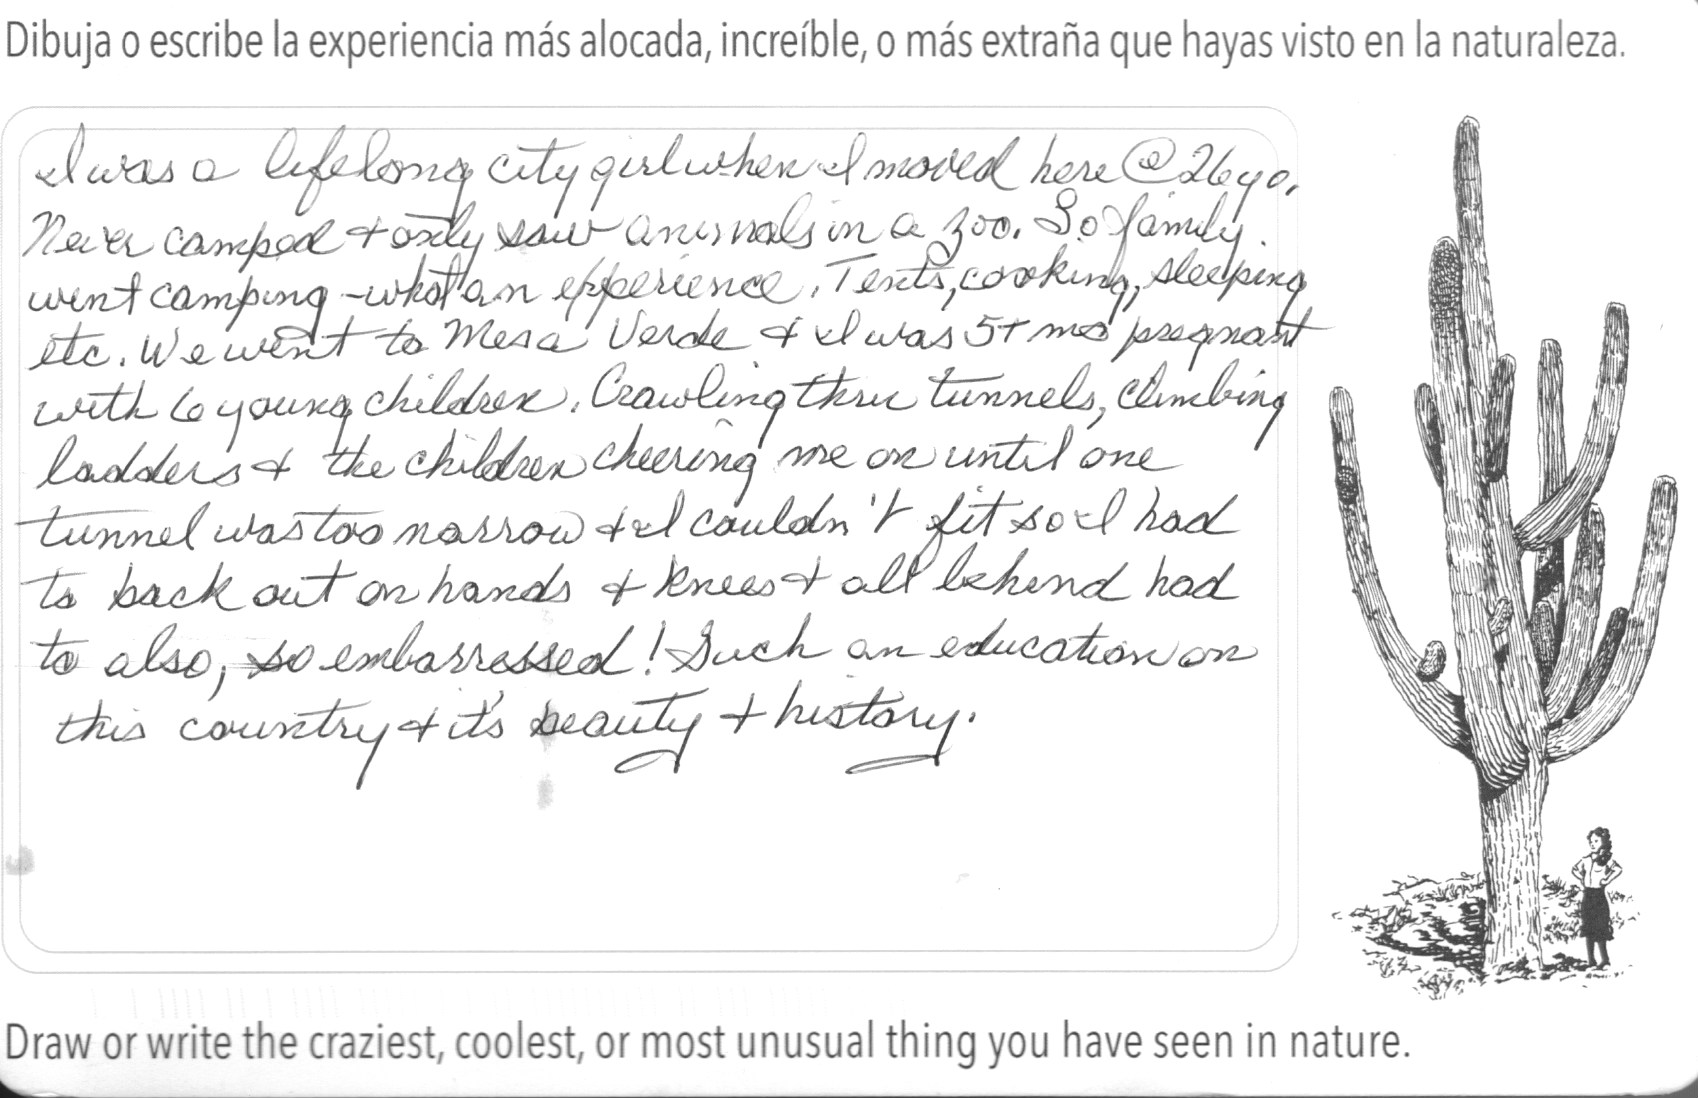 Dibuja o escribe la experiencia más alocada, increíble, o más extraña que hayas visto en la naturaleza.
I was a lifelong city girl when I moved here @ 26 yo.
Never camped + only saw animals in a zoo. So family
went camping - what an experience. Tents, cooking, sleeping
etc. We went to Mesa Verde + I was 5+ mo pregnant
with 6 young children. Crawling thru tunnels, climbing
ladders + the children cheering me on until one
tunnel was too narrow + I couldn't fit so I had
to back out on hands + knees + all behind had
to also, so embarressed! Such an education on
this country + it's beauty + history.
Draw or write the craziest, coolest, or most unusual thing you have seen in nature.